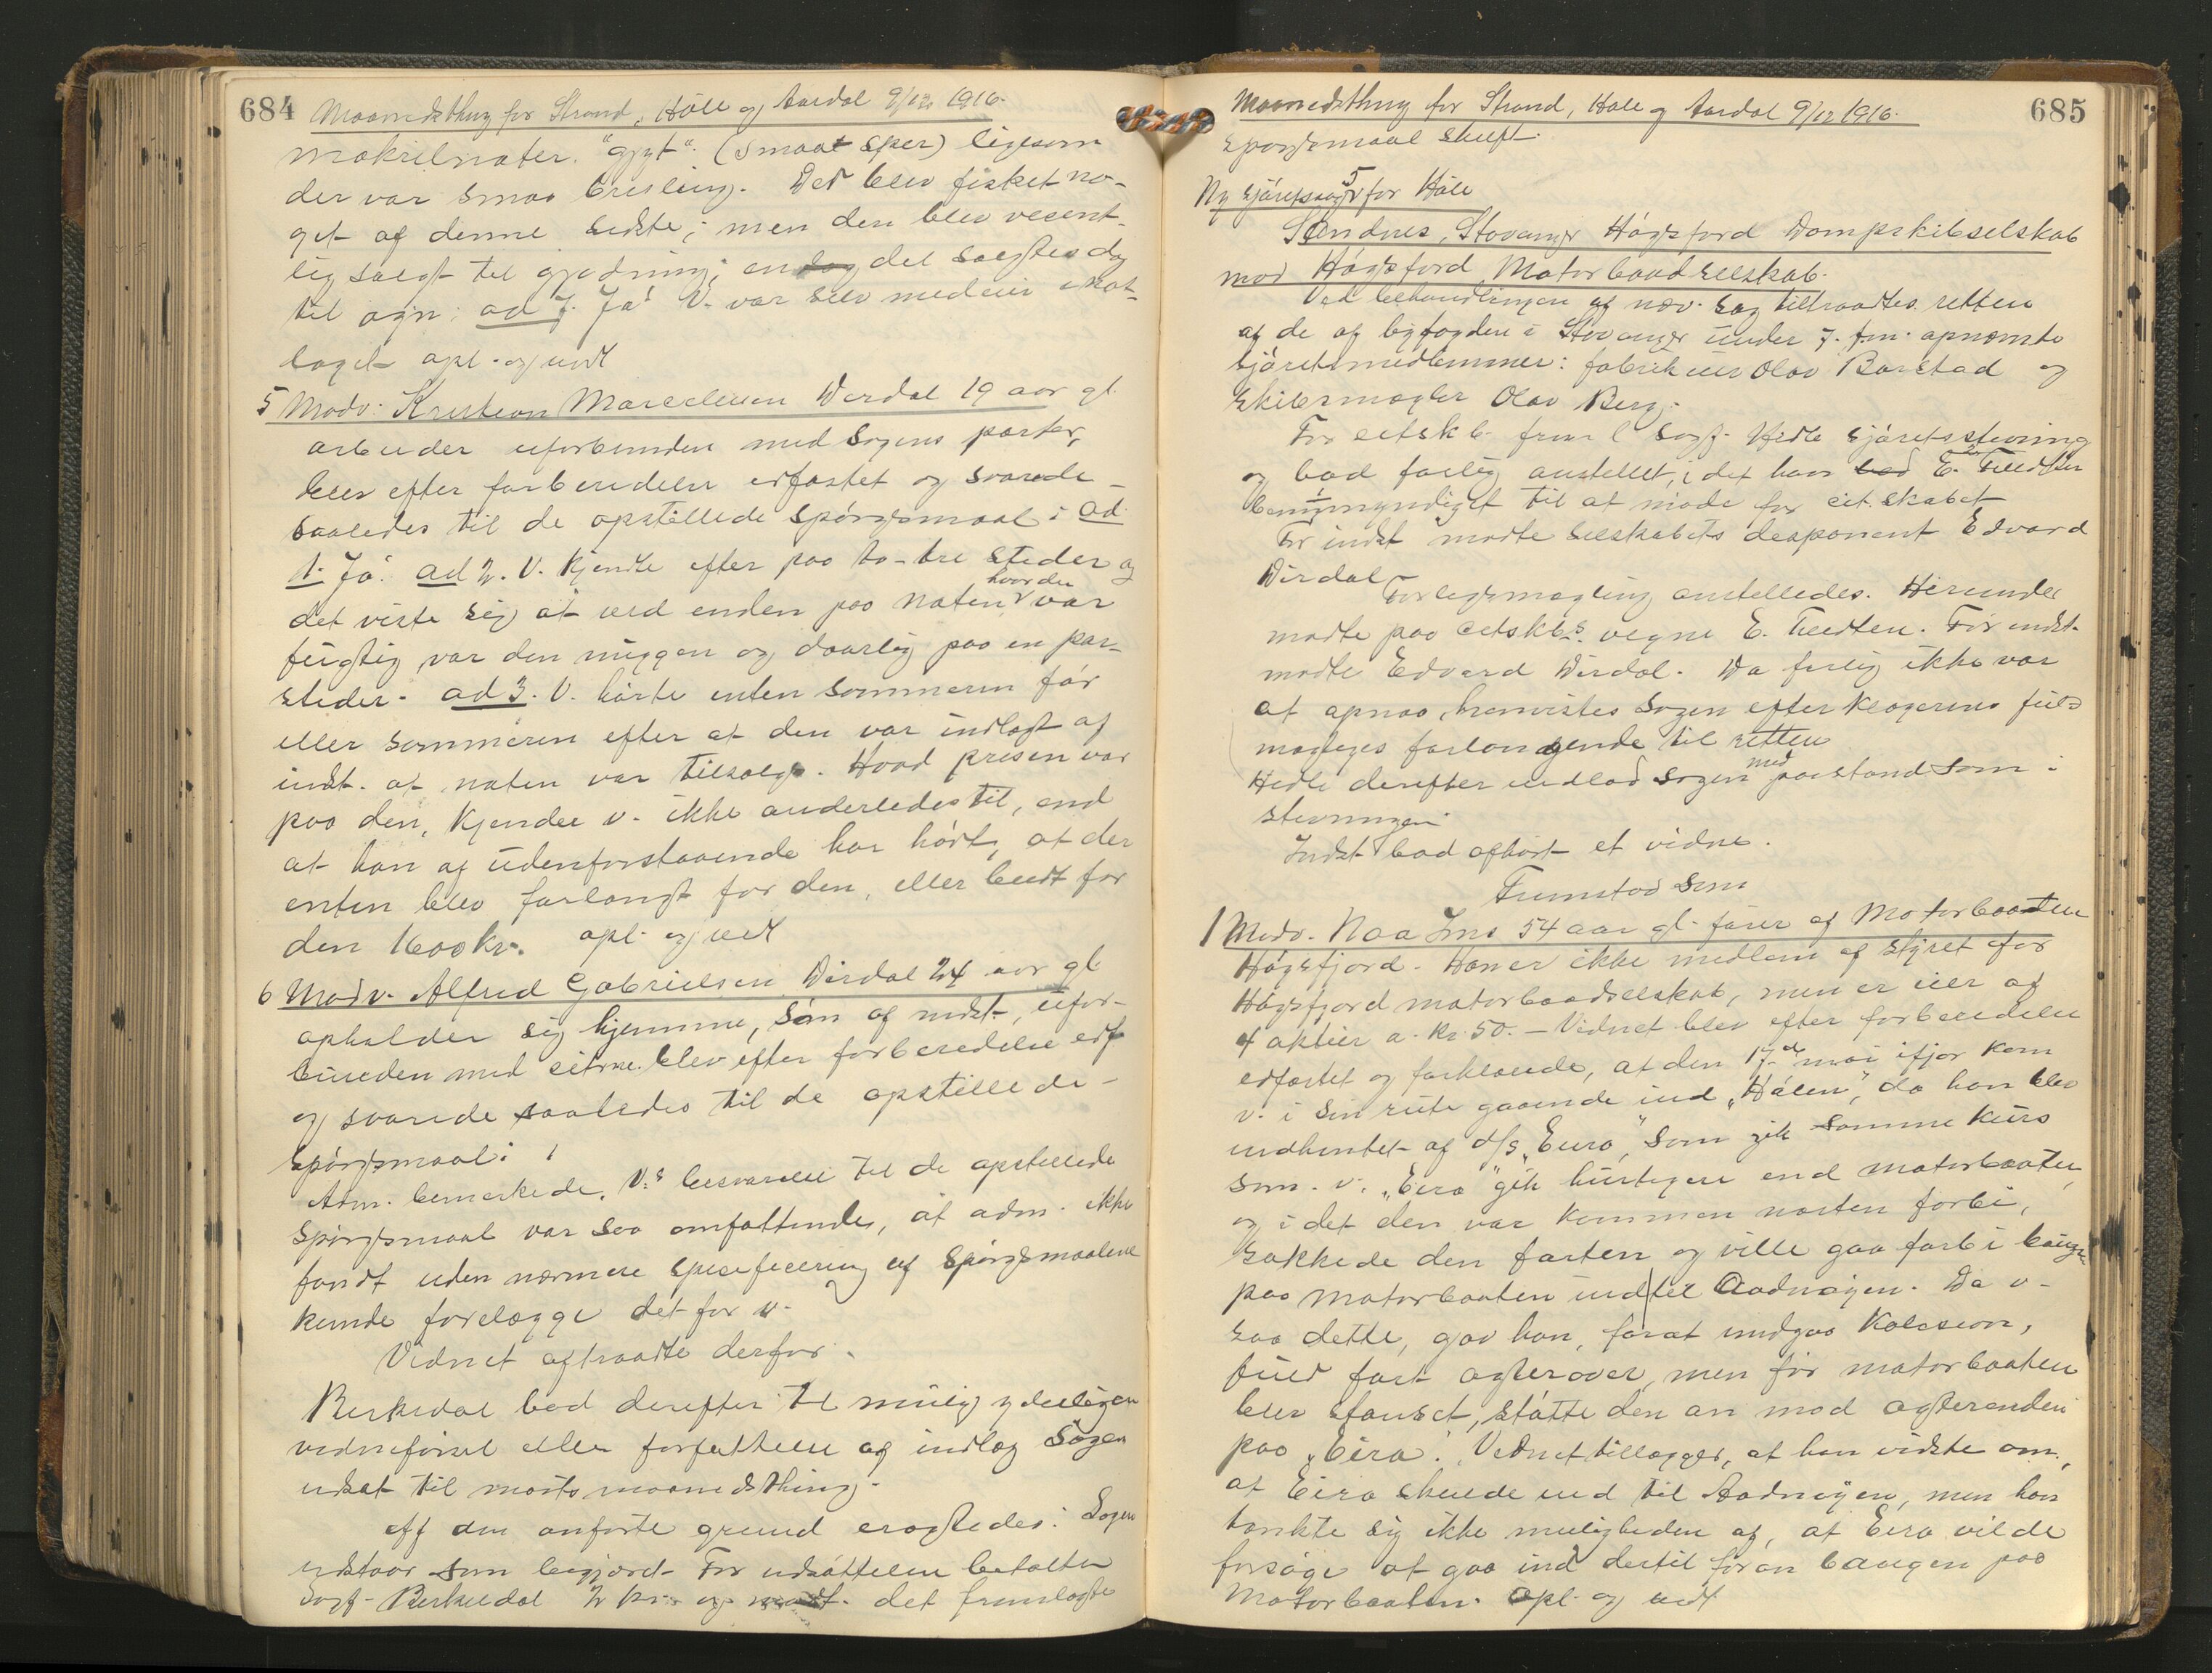 684 Maanedsthing for Strand, Høle og Aardal 9/12 1916.
makrelnøter. "gyt". (smaat sper) ligesom
der var smaa brisling. Det blev fisket no-
get af denne sidste; men den blev vesent-
lig solgt til gjødning; en del solgtes dog
til agn: ad 7. Ja! V. var selv medeier i not-
laget opl. og vedt
5 Modv: Kristian Marcelius Dirdal 19 aar gl.
arbeider uforbunden med sagens parter,
blev efter forberedelse edfæstet og svarede
saaledes til de opstillede spørgsmaal: ad
1. Ja. ad 2. V. kjendte efter paa to-tre steder og
det viste sig at ved enden paa noten hvor den var
fugtig var den muggen og daarlig paa en par
steder. ad 3. V. hørte enten sommeren før
eller sommeren efter at den var indlagt af
indst. at noten var tilsalgs. Hvad prisen var
paa den, kjender v. ikke anderledes til, end
at han af udenforstaaende har hørt, at der
enten blev forlangt for den, eller budt for
den 1600 kr. opl. og vedt
6 Modv. Alfred Gabrielsen Dirdal 24 aar gl.
opholder sig hjemme, søn af indst., ufor-
bunden med citne. blev efter forberedelse edf.
og svarede saaledes til de opstillede
spørgsmaal:
Adm. bemerkede, V.s besvarelse til de opstillede
spørgsmaal var saa omfattende, at adm. ikke
fandt uden nærmere specificering af spørgsmaalene
kunde forelægge det for v.
Vidnet aftraadte derfor.
Berkedal bad derefter til mulig yderligere
vidneførsel eller forfattelse af indlæg sagen
udsat til marts maanedsthing.
Af den anførte grund eragtedes: Sagen
udstaar som begjært. For udsættelsen betalte
Sagf. Berkedal 2 kr. og det fremlagte
685
Maanedsthing for Strand, Høle og Aardal 9/12 1916.
spørgsmaal skrift.
Ny sjøretssag 5 for Høle
Sandnes, Stavanger Høgsfjord Dampskibselskab
mod Høgsfjord Motorbaadselskab.
Ved behandlingen af næv. sag tiltraadtes retten
af de af byfogden i Stavanger under 7. fm. opnævnte
sjøretsmedlemmer: fabrikeier Olav Barstad og
skibsmægler Olav Berg.
For citskb. frem l. Sagf. Hedle sjøretsstevning
og bad forlig anstillet, i det han E. Tvedten
bemyndiget til at møde for cit.skabet
For indst mødte selskabets disponent Edvard
Dirdal
Forligsmægling anstilledes. Herunder
mødte paa citskbs. vegne E. Tveedten. For indst.
mødte Edvard Dirdal. Da forlig ikke var
at opnaa, henvistes sagen efter klagerens fuld
mægtiges forlangende til retten
Hedle derefter indlod sagen med paastand som i
stevningen.
Indst bad afhørt et vidne.
Fremstod som
1 Modv. Naa Ims 54 aar gl. fører af Motorbaaten
Høgsfjord. Han er ikke medlem af styret for
Høgsfjord motorbaadselskab, men er eier af
4 aktier a. kr. 50.- Vidnet blev efter forberedelse
edfæstet og forklarede, at den 17de mai ifjor kom
v. i sin rute gaaende ind "Hølen", da han blev
indhentet af d/s "Eira", som gik samme kurs
som v. "Eira" gik hurtigere end motorbaaten,
og i det den var kommen næsten forbi,
sakkede den farten og ville gaa forbi baugen
paa motorbaaten ind til Aadnøyen. Da v.
saa dette, gav han, forat undgaa kolision,
fuld fart agterover, men før motorbaaten
blev stanset, støtte den an mod agterenden
paa "Eira". Vidnet tillægges, at han vidste om,
at Eira skulde ind til Aadnøyen, men han
tænkte sig ikke muligheden af, at Eira vilde
forsøge at gaa ind dertil foran baugen paa
Motorbaaten. Opl. og vedt